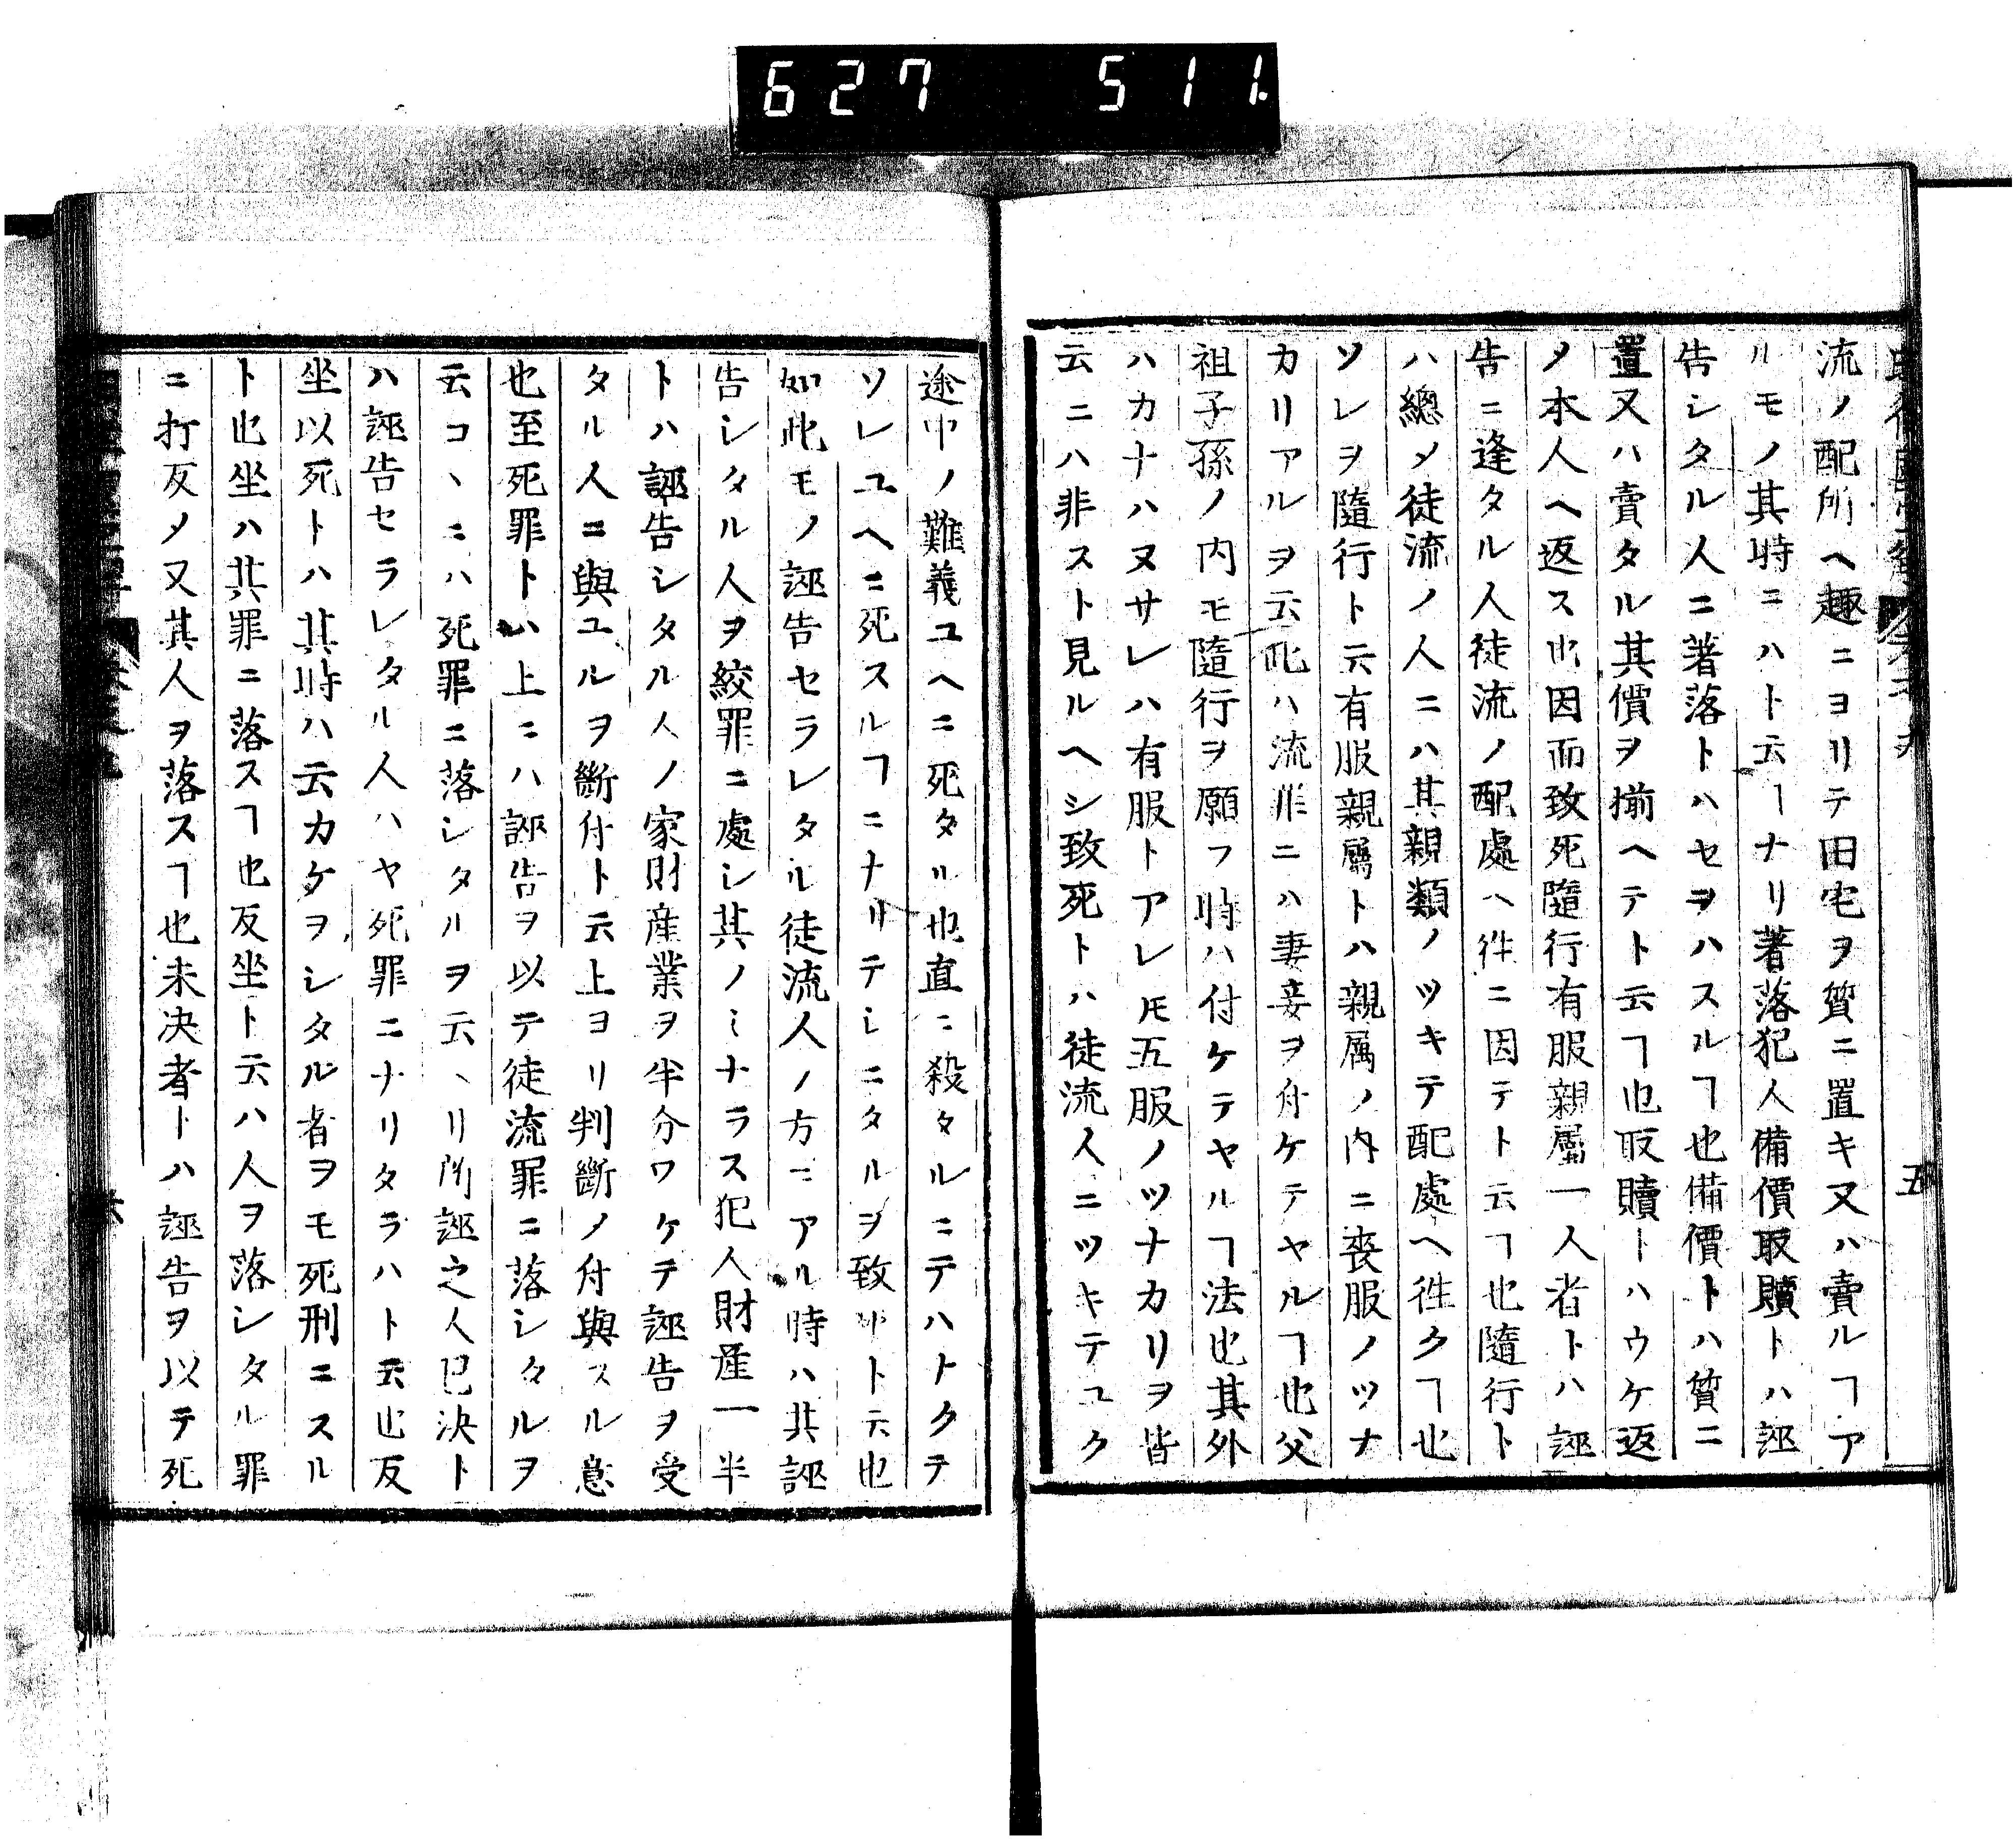 627 511
流ノ配所ヘ趣ニヨリテ田宅ヲ質ニ置キ又ハ賣ルヿア
ルモノ其時ニハト云ヿナリ著落犯人備價取贖トハ誣
告シタル人ニ著落トハセヲハスルヿ也備價トハ質ニ
置又ハ賣タル其價ヲ揃ヘテト云ヿ也取贖トハウケ返
メ本人ヘ返ス也因而致死隨行有服親屬一人者トハ誣
告ニ逢タル人徒流ノ配處ヘ徃ニ因テト云ヿ也隨行ト
ハ總メ徒流ノ人ニハ其親類ノツキテ配處ヘ徃クヿ也
ソレヲ隨行ト云有服親屬トハ親属ノ内ニ喪服ノツナ
カリアルヲ云此ハ流罪ニハ妻妾ヲ付ケテヤルヿ也父
祖子孫ノ内モ隨行ヲ願フ時ハ付ケテヤルヿ法也其外
ハカナハヌサレハ有服トアレ𪜈五服ノツナカリヲ皆
云ニハ非スト見ルヘシ致死トハ徒流人ニツキテユク
五
途中ノ難義ユヘニ死タル也直ニ殺タルニテハナクテ
ソレユヘニ死スルヿニナリテシニタルヲ致死ト云也
如此モノ誣告セラレタル徒流人ノ方ニアル時ハ其誣
告シタル人ヲ絞罪ニ處シ其ノミナラス犯人財産一半
トハ誣告シタル人ノ家財産業ヲ半分ワケテ誣告ヲ受
タル人ニ與ユルヲ斷付ト云上ヨリ判斷ノ付與スル意
也至死罪トハ上ニハ誣告ヲ以テ徒流罪ニ落シタルヲ
云コヽニハ死罪ニ落シタルヲ云ヽリ所誣之人已決ト
ハ誣告セラレタル人ハヤ死罪ニナリタラハト云也反
坐以死トハ其時ハ云カケヲシタル者ヲモ死刑ニスル
ト也坐ハ其罪ニ落スヿ也反坐ト云ハ人ヲ落シタル罪
ニ打反メ又其人ヲ落スヿ也未决者トハ誣告ヲ以テ死
六